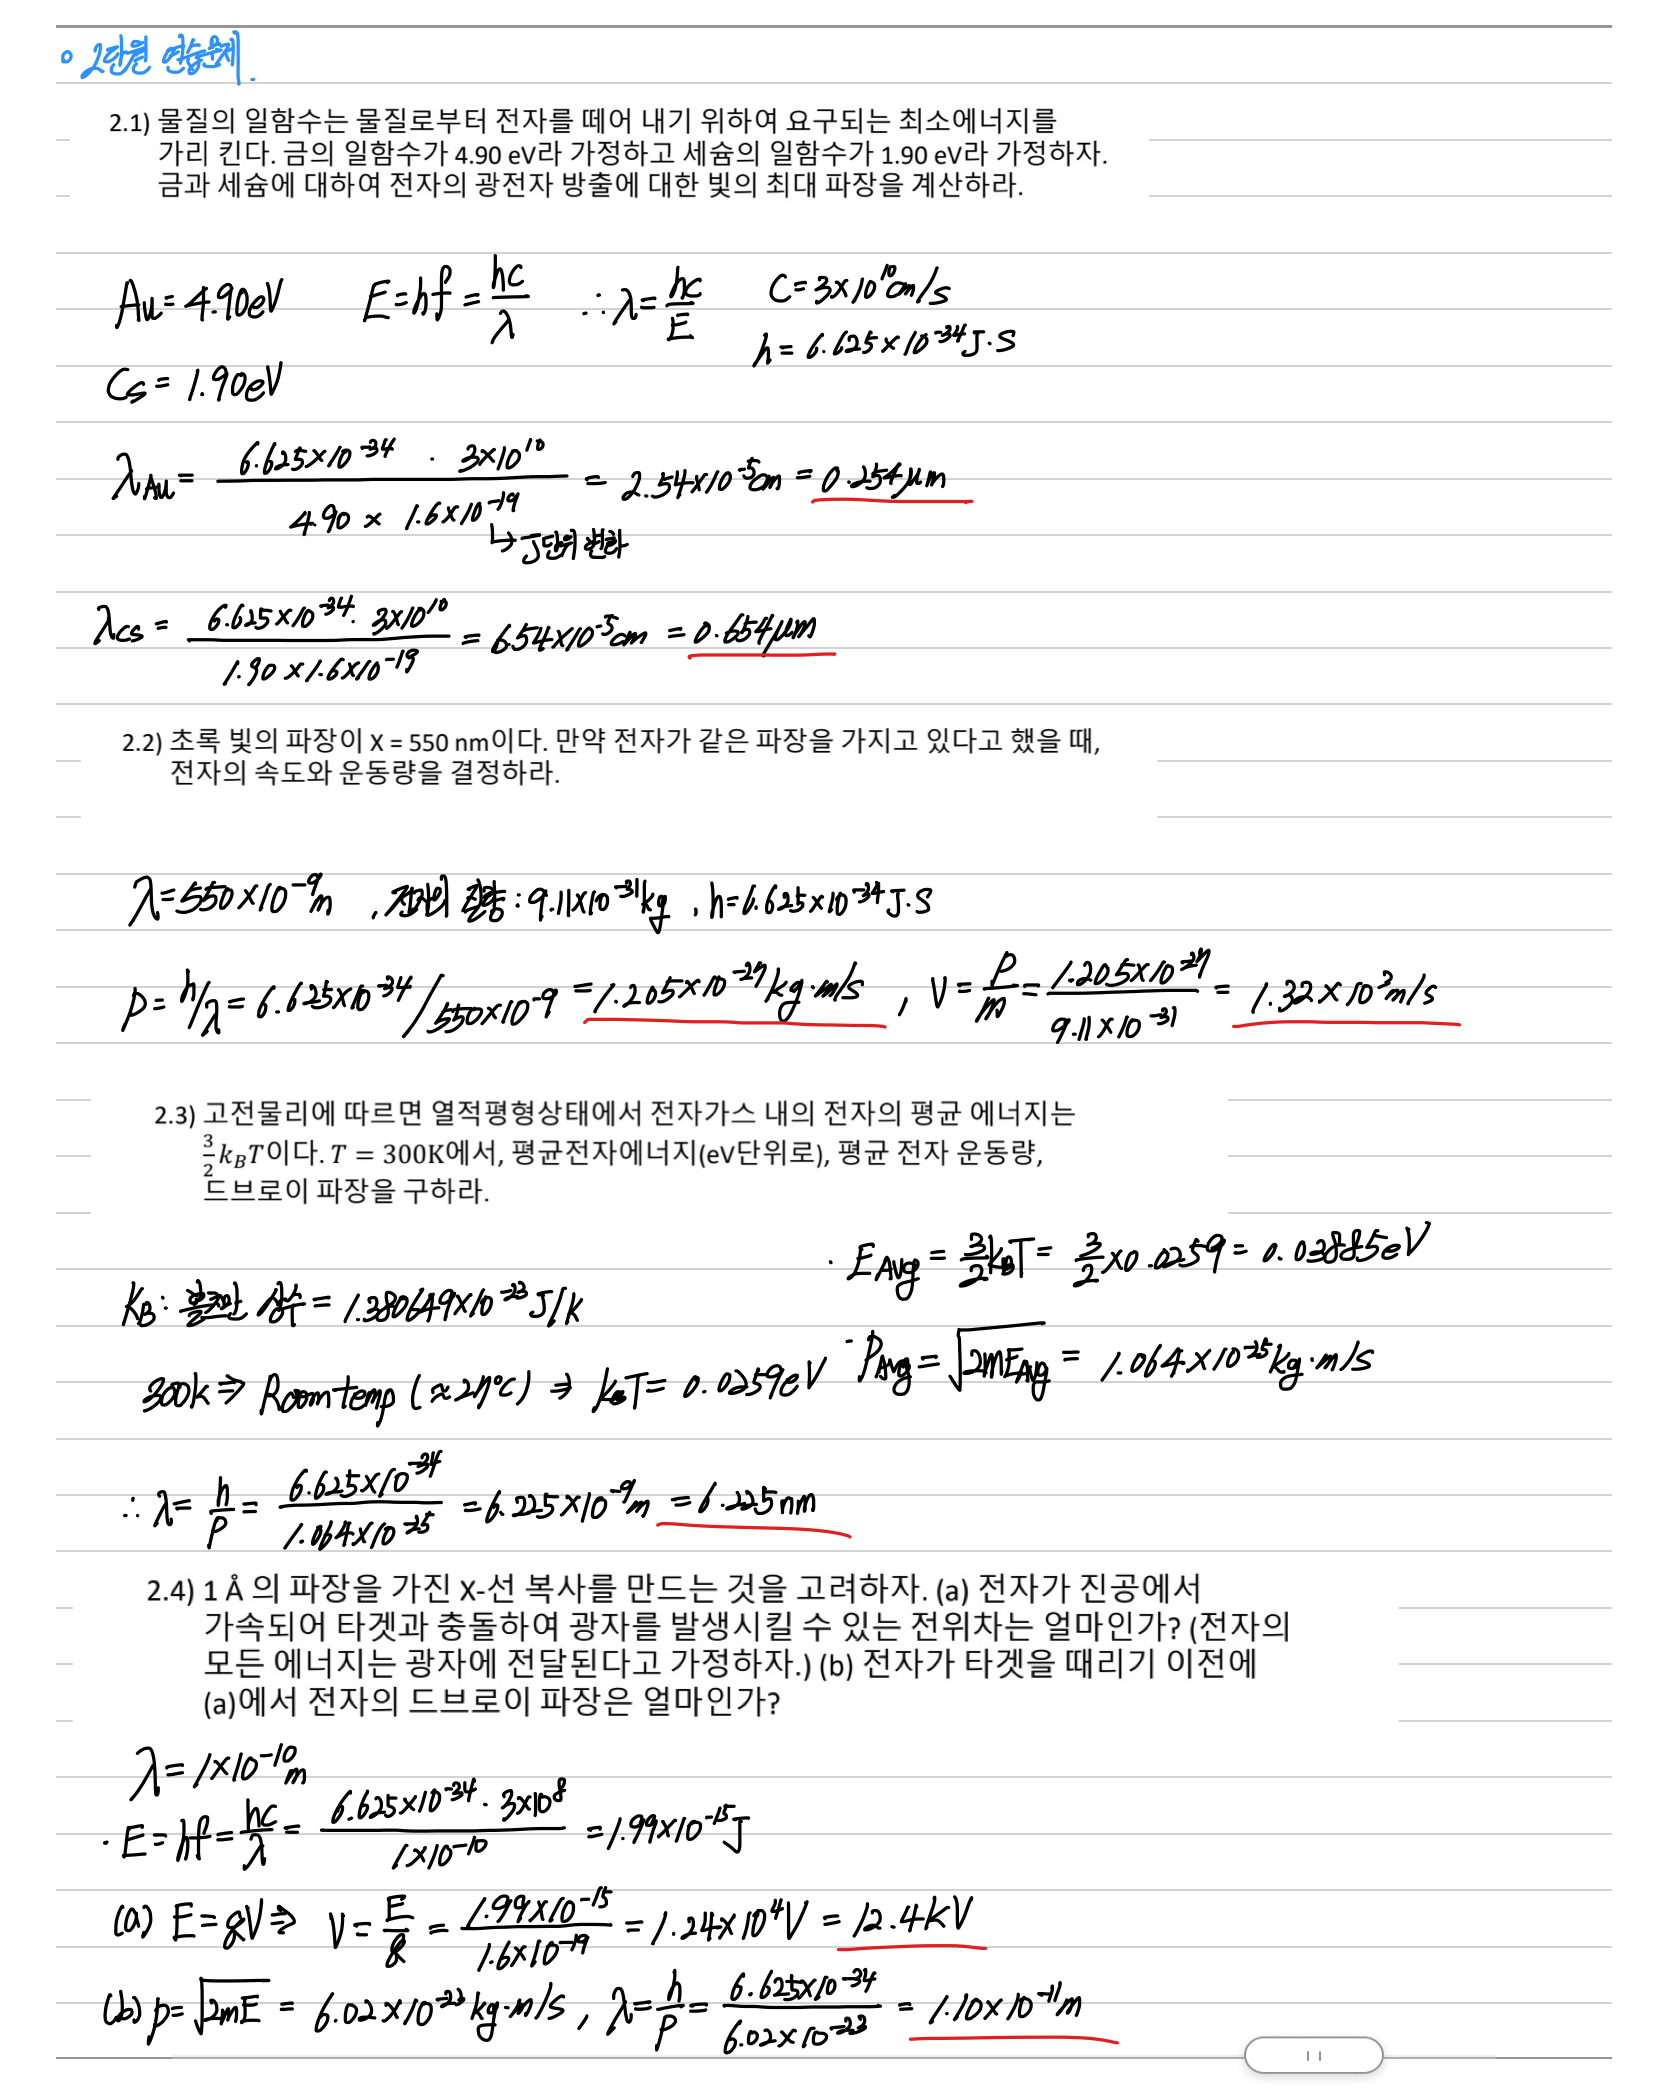 o 2단원 연습문제.
2.1) 물질의 일함수는 물질로부터 전자를 떼어 내기 위하여 요구되는 최소에너지를
가리 킨다. 금의 일함수가 4.90 eV라 가정하고 세슘의 일함수가 1.90 eV라 가정하자.
금과 세슘에 대하여 전자의 광전자 방출에 대한 빛의 최대 파장을 계산하라.
Au = 4.90eV E = hf = hc/λ ∴ λ = hc/E C = 3×10^10 cm/s
h = 6.625×10^-34 J·S
Cs = 1.90eV
λAu = (6.625×10^-34 · 3×10^10)/(4.90 × 1.6×10^-19) = 2.54×10^-5 cm = 0.254μm
↳ J단위 변환
λcs = (6.625×10^-34 · 3×10^10)/(1.90 × 1.6×10^-19) = 6.54×10^-5 cm = 0.654μm
2.2) 초록 빛의 파장이 X = 550 nm이다. 만약 전자가 같은 파장을 가지고 있다고 했을 때,
전자의 속도와 운동량을 결정하라.
λ = 550×10^-9 m , 전자의 질량 : 9.11×10^-31 kg , h = 6.625×10^-34 J·S
p = h/λ = 6.625×10^-34 / 550×10^-9 = 1.205×10^-27 kg·m/s , V = P/m = (1.205×10^-27)/(9.11×10^-31) = 1.32×10^3 m/s
2.3) 고전물리에 따르면 열적평형상태에서 전자가스 내의 전자의 평균 에너지는
3/2 k_BT이다. T = 300K에서, 평균전자에너지(eV단위로), 평균 전자 운동량,
드브로이 파장을 구하라.
· EAvg = 3/2 kBT = 3/2 × 0.0259 = 0.03885eV
KB : 볼츠만 상수 = 1.380649×10^-23 J/k
· PAvg = √(2mEAvg) = 1.064×10^-25 kg·m/s
300k ⇒ Room temp (≈27°C) ⇒ kBT = 0.0259eV
∴ λ = h/P = (6.625×10^-34)/(1.064×10^-25) = 6.225×10^-9 m = 6.225nm
2.4) 1 Å 의 파장을 가진 X-선 복사를 만드는 것을 고려하자. (a) 전자가 진공에서
가속되어 타겟과 충돌하여 광자를 발생시킬 수 있는 전위차는 얼마인가? (전자의
모든 에너지는 광자에 전달된다고 가정하자.) (b) 전자가 타겟을 때리기 이전에
(a)에서 전자의 드브로이 파장은 얼마인가?
λ = 1×10^-10 m
· E = hf = hc/λ = (6.625×10^-34 · 3×10^8)/(1×10^-10) = 1.99×10^-15 J
(a) E = qV ⇒ V = E/q = (1.99×10^-15)/(1.6×10^-19) = 1.24×10^4 V = 12.4kV
(b) p = √(2mE) = 6.02×10^-23 kg·m/s , λ = h/P = (6.625×10^-34)/(6.02×10^-23) = 1.10×10^-11 m